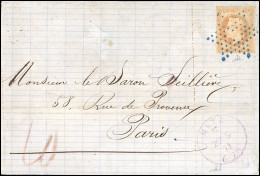 Monsieur le Baron Seillière,
58, Rue de Provence
Paris.